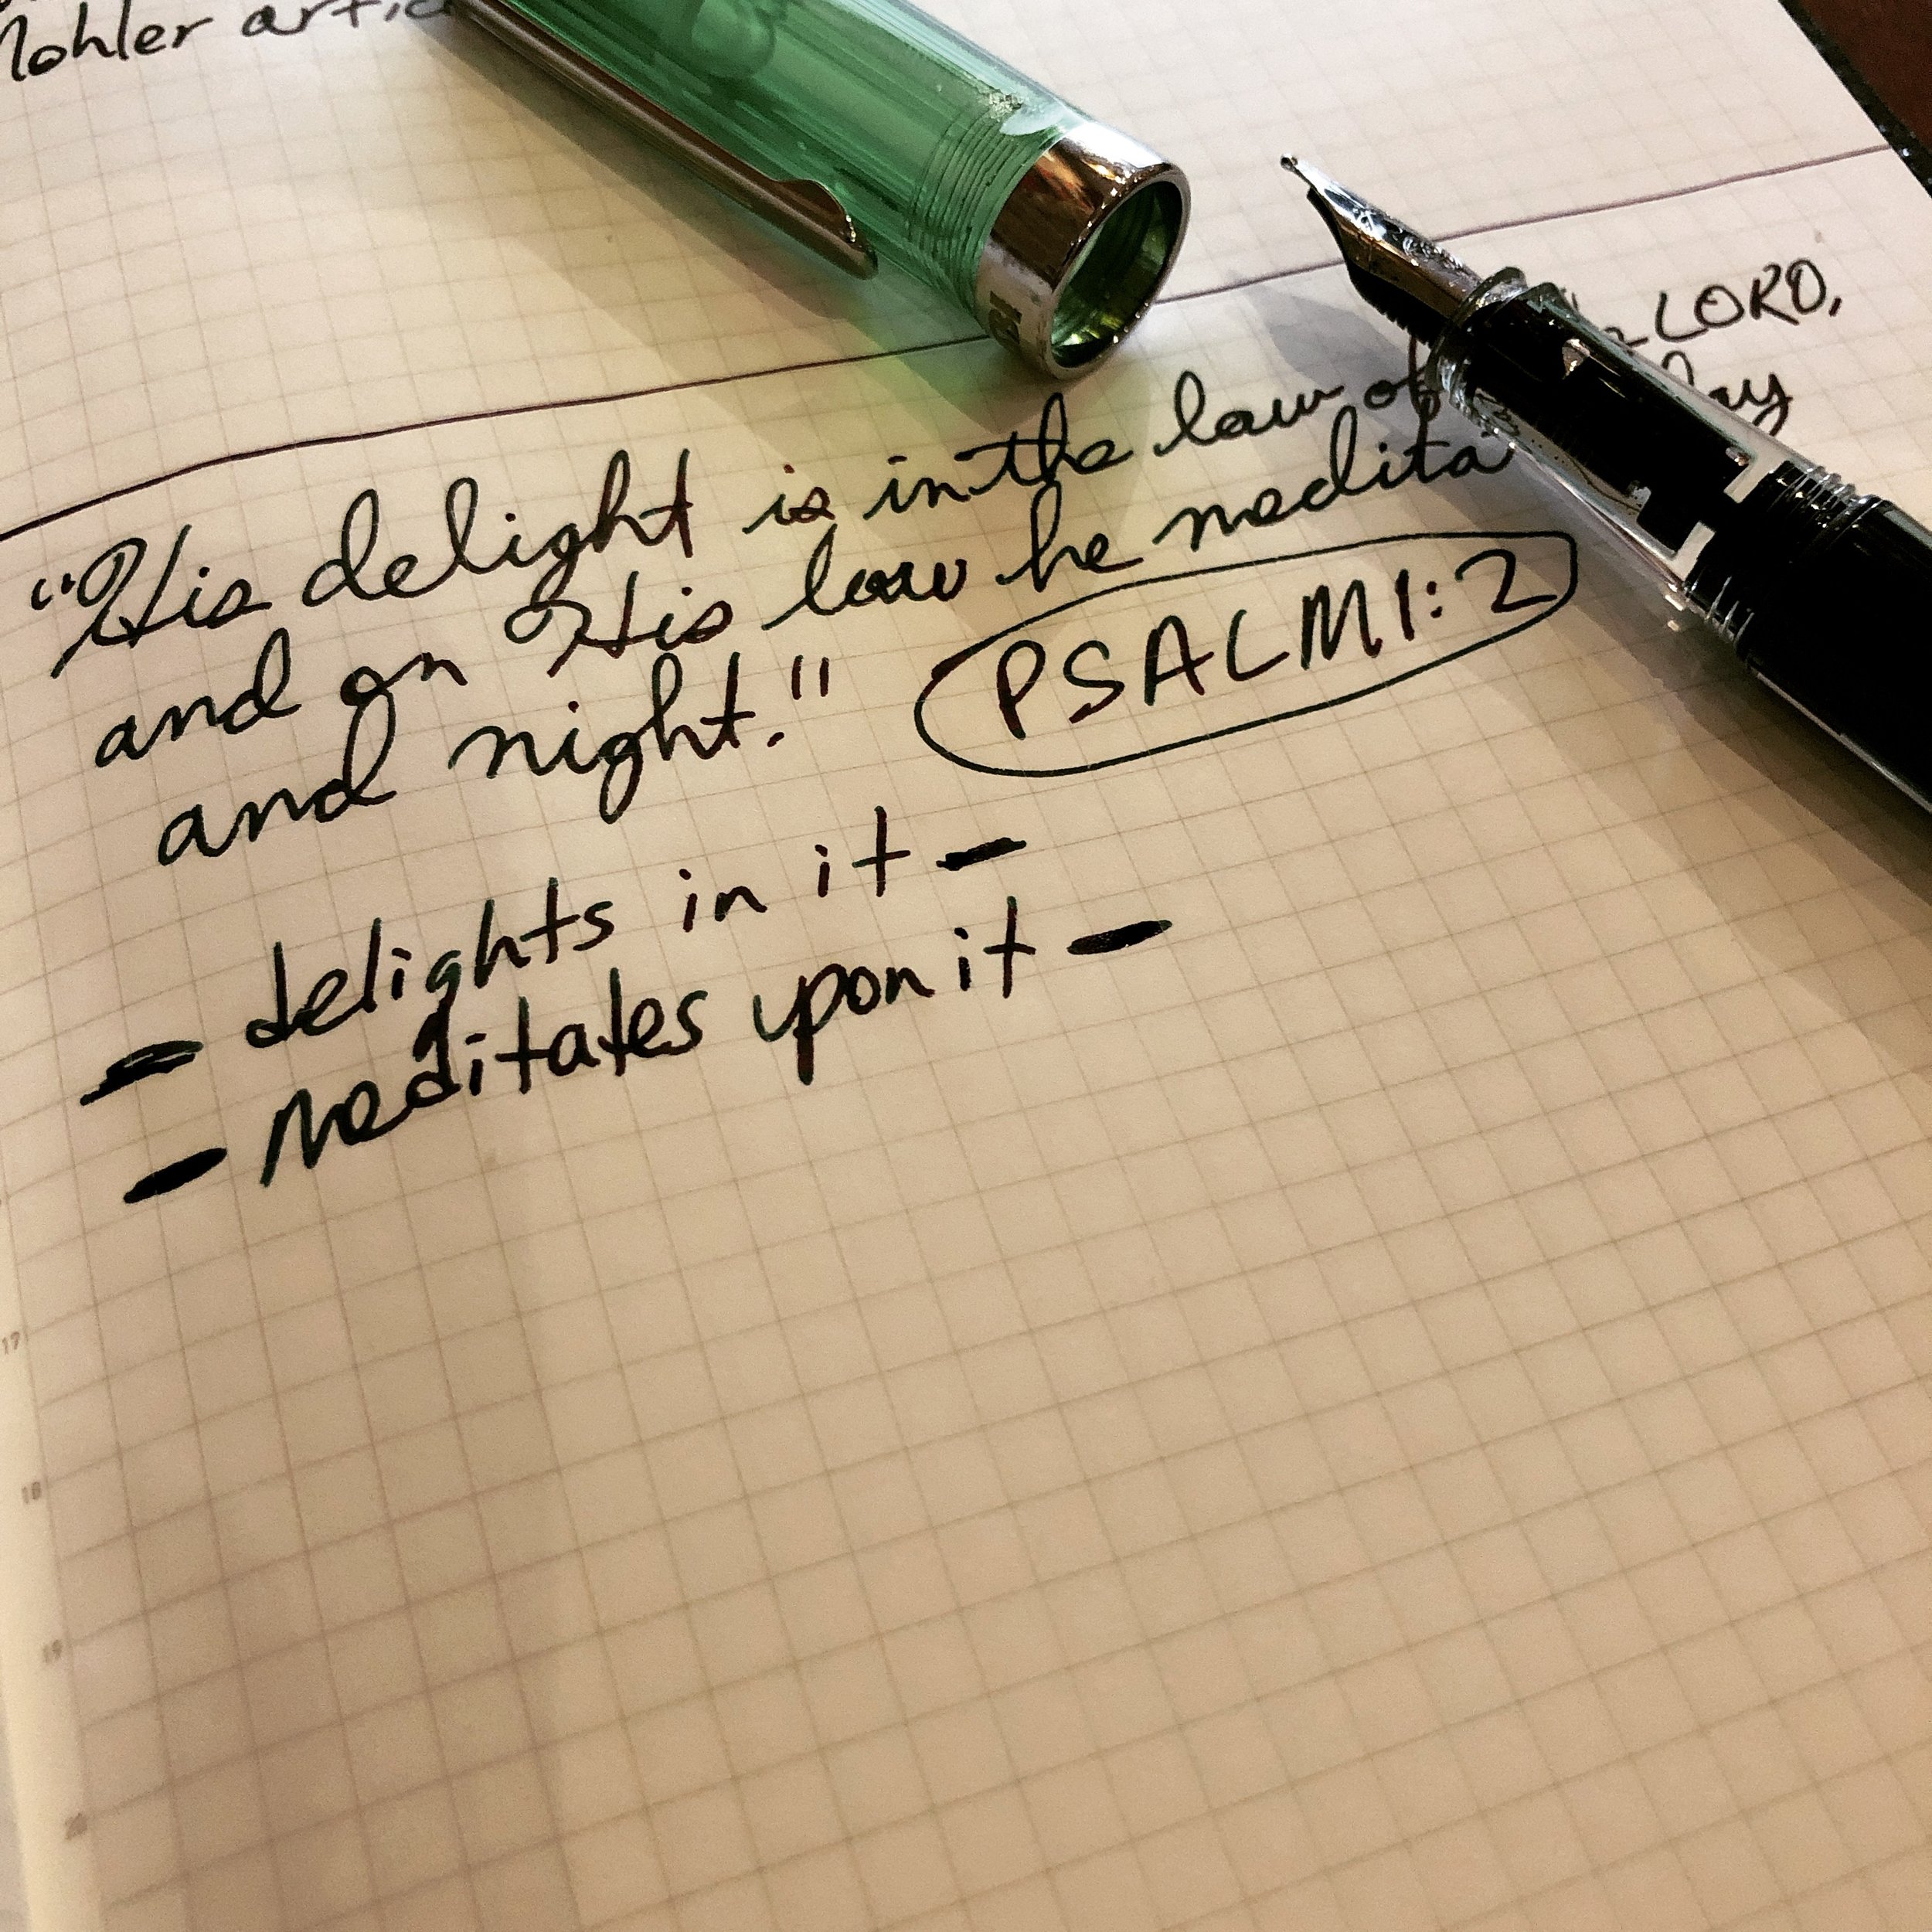 Mohler
"His delight is in the law of LORD,
and on His law he medita
and night." PSALM 1:2
- delights in it -
- meditates upon it -
17
18
19
20